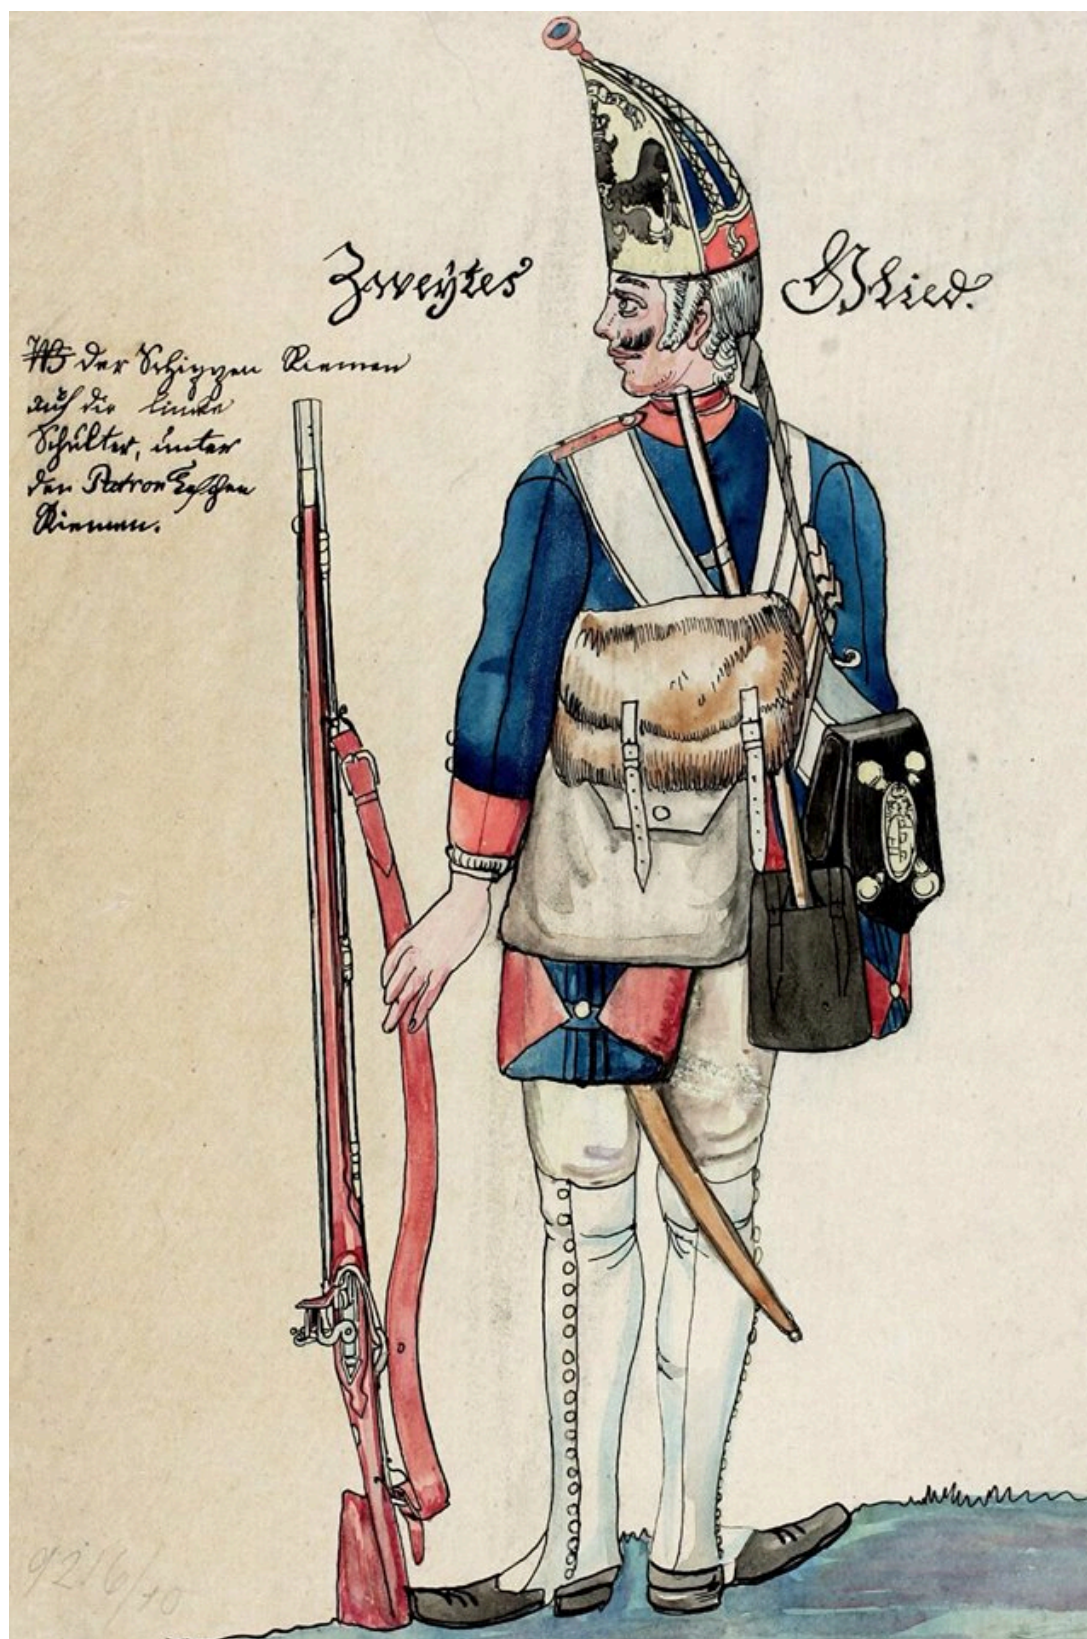 Zweytes Glied.
der Schippen Riemen
auf die lincke
Schulter, unter
den Patrontaschen
Riemen.